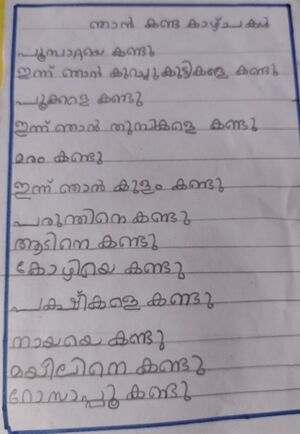 ഞാൻ കണ്ട കാഴ്ചകൾ
പൂമ്പാറ്റയെ കണ്ടു
ഇന്ന് ഞാൻ കുഞ്ഞുകുട്ടികളെ കണ്ടു
പൂക്കളെ കണ്ടു
ഇന്ന് ഞാൻ തുമ്പികളെ കണ്ടു
മരം കണ്ടു
ഇന്ന് ഞാൻ കുളം കണ്ടു
പരുന്തിനെ കണ്ടു
ആടിനെ കണ്ടു
കോഴിയെ കണ്ടു
പക്ഷികളെ കണ്ടു
നായയെ കണ്ടു
മയിലിനെ കണ്ടു
റോസാപ്പൂ കണ്ടു